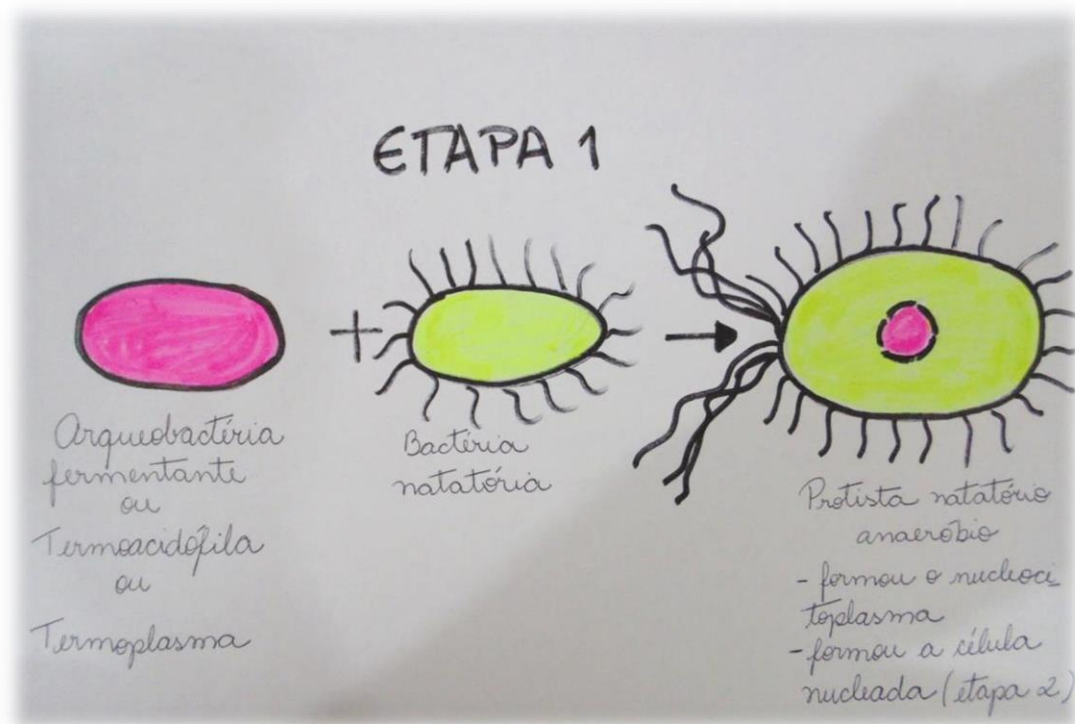 ETAPA 1
+
Arqueobactéria
fermentante
ou
Termoacidófila
ou
Termoplasma
Bactéria
natatória
Protista natatório
anaeróbio
- formou o nucleoci_
toplasma
- formou a célula
nucleada (etapa 2)